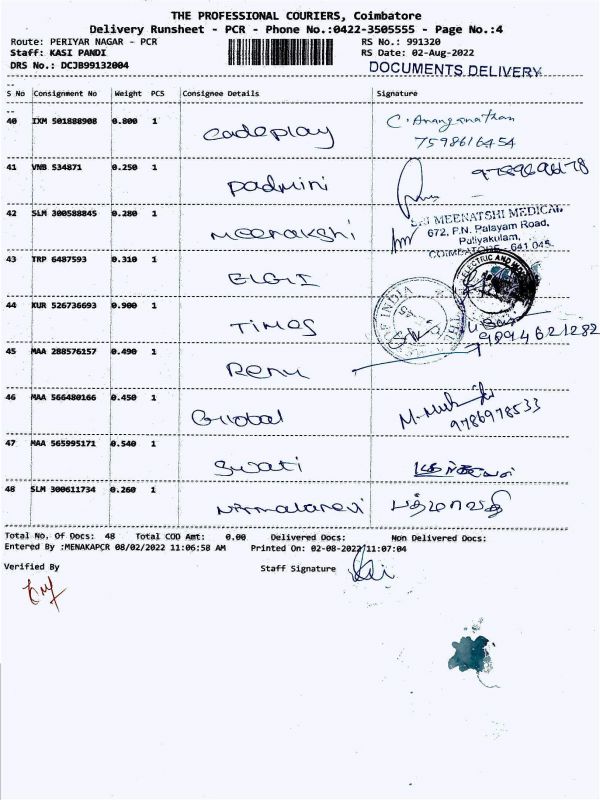 THE PROFESSIONAL COURIERS, Coimbatore
Delivery Runsheet - PCR - Phone No.:0422-3505555 - Page No.:4
Route: PERIYAR NAGAR - PCR RS No.: 991320
Staff: KASI PANDI RS Date: 02-Aug-2022
DRS No.: DCJB99132004 DOCUMENTS DELIVERY
S No Consignment No Weight PCS Consignee Details Signature
40 IXM 501888908 0.800 1 Codeplay C. Ananganathan
7598616454
41 VNB 534871 0.250 1 Padmini
42 SLM 300588845 0.280 1 Meenakshi SRI MEENATSHI MEDICAL
672, P.N. Palayam Road,
Puliyakulam,
COIMBATORE - 641 045
43 TRP 6487593 0.310 1 ELGI ELECTRIC AND
44 KUR 526736693 0.900 1 Times OF INDIA THE
9894621282
45 MAA 288576157 0.490 1 Renu
46 MAA 566480166 0.450 1 Global
9786978533
47 MAA 565995171 0.540 1 Swati
48 SLM 300611734 0.260 1 Nirmaladevi பத்மாவதி
Total No. Of Docs: 48 Total COD Amt: 0.00 Delivered Docs: Non Delivered Docs:
Entered By :MENAKAPCR 08/02/2022 11:06:58 AM Printed On: 02-08-2022/11:07:04
Verified By Staff Signature